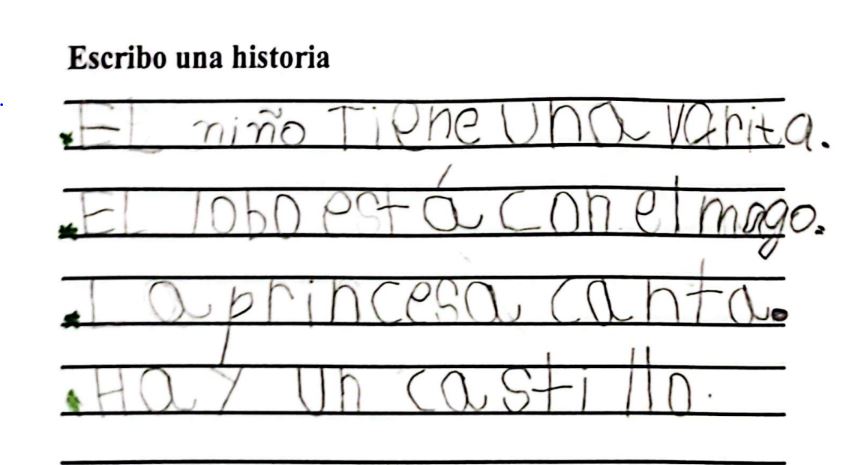 Escribo una historia
EL niño Tiene una varita.
EL lobo está con el mago.
La princesa canta.
Hay un castillo.